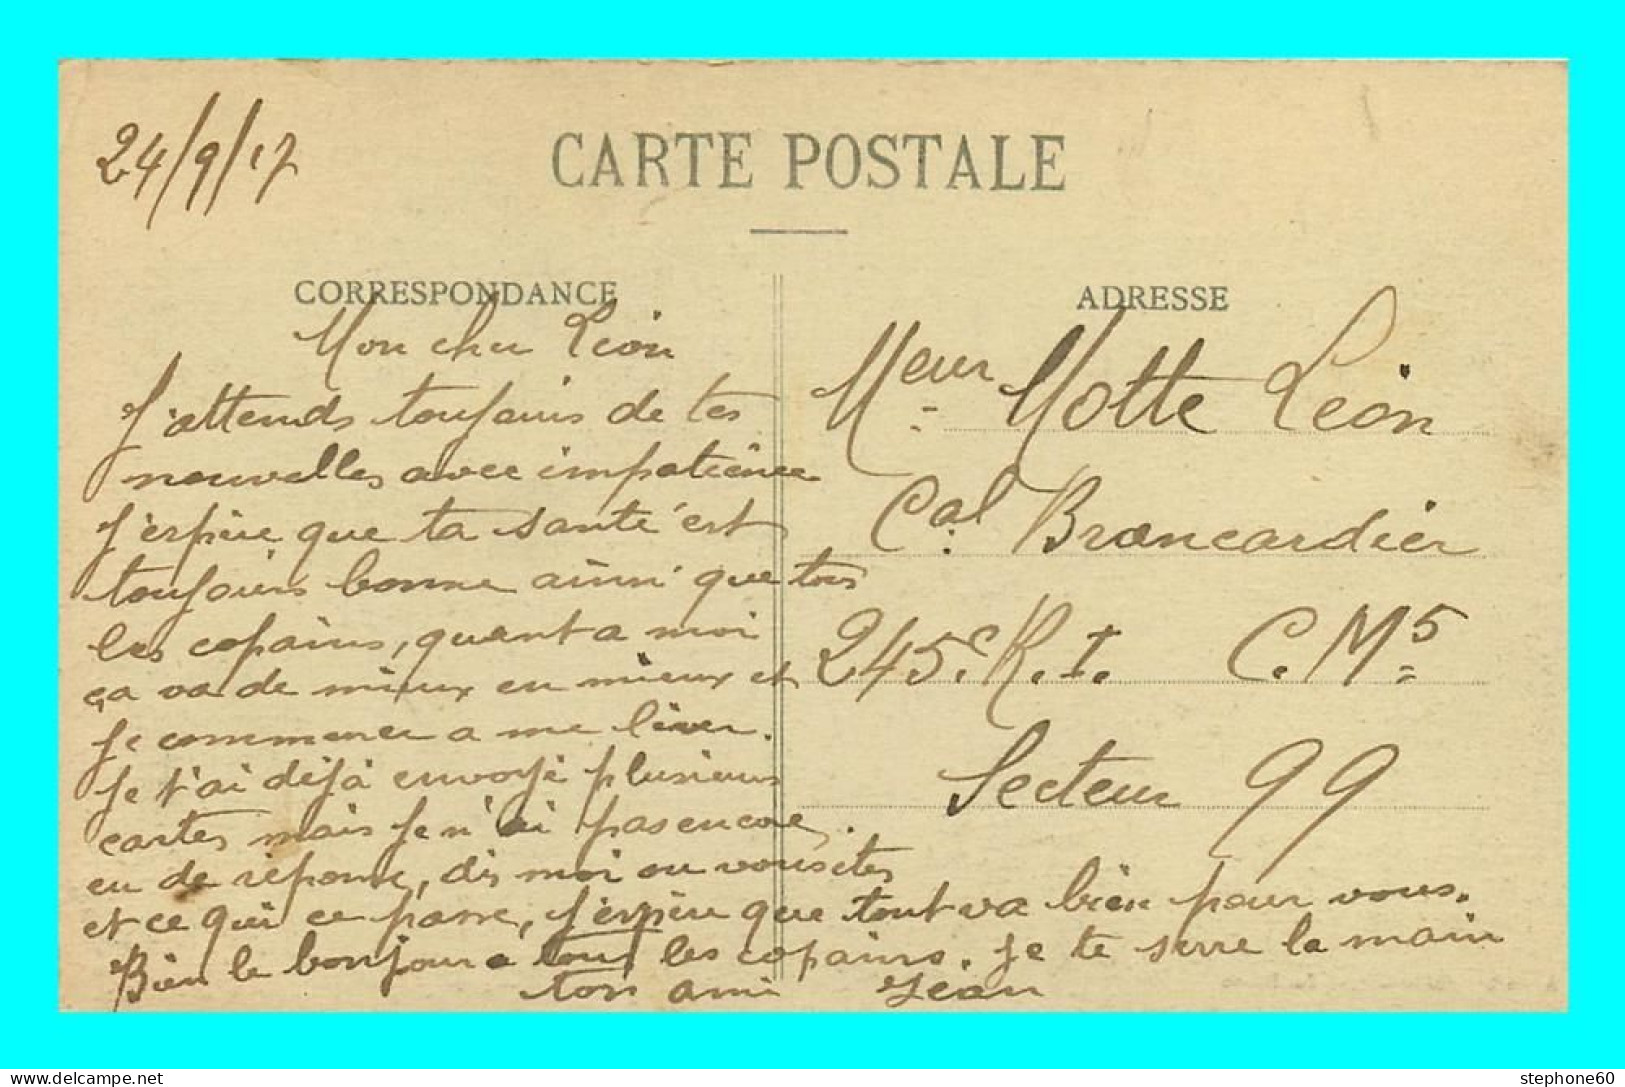 24/9/17
CARTE POSTALE
CORRESPONDANCE
Mon cher Léon
J'attends toujours de tes
nouvelles avec impatience
J'espère que ta santé est
toujours bonne ainsi que tous
les copains, quant a moi
ça va de mieux en mieux et
je commence a me lever.
Je t'ai déjà envoyé plusieurs
cartes mais je n'ai pas encore
eu de réponse, dis moi ou vous etes
et ce qui ce passe, j'espère que tout va bien pour vous.
Bien le bonjour a tous les copains. Je te serre la main
ton ami Jean
ADRESSE
Meur Motte Léon
Cal Brancardier
245e R.I. C.M5
Secteur 99
stephone60